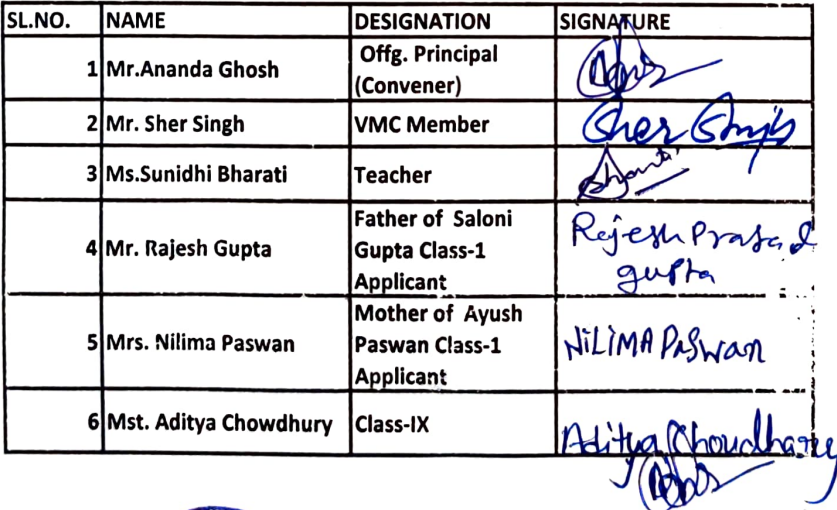 SL.NO. NAME DESIGNATION SIGNATURE
1 Mr.Ananda Ghosh Offg. Principal
(Convener)
2 Mr. Sher Singh VMC Member Sher Singh
3 Ms.Sunidhi Bharati Teacher
4 Mr. Rajesh Gupta Father of Saloni
Gupta Class-1
Applicant
Rajesh Prasad
gupta
5 Mrs. Nilima Paswan Mother of Ayush
Paswan Class-1
Applicant
NiLiMA PaSwan
6 Mst. Aditya Chowdhury Class-IX Aditya Choudhary